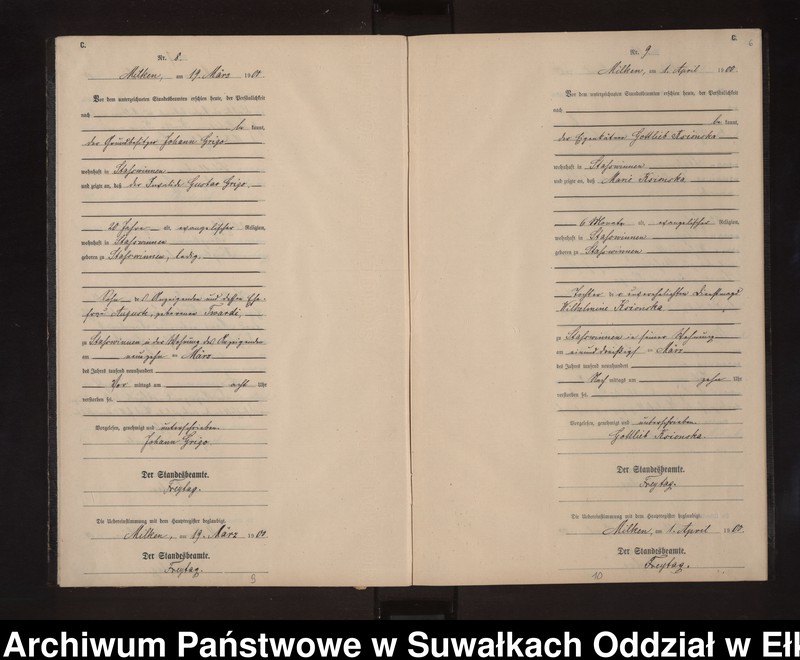 C.
Nr. 8.
Milken, am 19. März 1900.
Vor dem unterzeichneten Standesbeamten erschien heute, der Persönlichkeit
nach
be kannt,
der Grundbesitzer Johann Grigo
wohnhaft in Stassowinnen
und zeigte an, daß der Invalide Gustav Grigo,
20 Jahre alt, evangelischer Religion,
wohnhaft in Stassowinnen
geboren zu Stassowinnen, ledig.
Sohn des Anzeigenden und dessen Ehe-
frau Auguste, geborenen Twardi,
zu Stassowinnen in der Wohnung des Anzeigenden
am neunzehn ten März
des Jahres tausend neunhundert
Vor mittags um acht Uhr
verstorben sei.
Vorgelesen, genehmigt und unterschrieben
Johann Grigo
Der Standesbeamte.
Freytag.
Die Uebereinstimmung mit dem Hauptregister beglaubigt.
Milken, am 19. März 1900.
Der Standesbeamte.
Freytag.
9
C.
6
Nr. 9.
Milken, am 1. April 1900.
Vor dem unterzeichneten Standesbeamten erschien heute, der Persönlichkeit
nach
be kannt,
der Eigenkätner Gottlieb Koionska
wohnhaft in Stassowinnen
und zeigte an, daß Marie Koionska
6 Monate alt, evangelischer Religion,
wohnhaft in Stassowinnen
geboren zu Stassowinnen
Tochter der unverehelichten Dienstmagd
Wilhelmine Koionska
zu Stassowinnen in seiner Wohnung
am einunddreißigs ten März
des Jahres tausend neunhundert
Nach mittags um zehn Uhr
verstorben sei.
Vorgelesen, genehmigt und unterschrieben
Gottlieb Koionska.
Der Standesbeamte.
Freytag.
Die Uebereinstimmung mit dem Hauptregister beglaubigt.
Milken, am 1. April 1900.
Der Standesbeamte.
Freytag.
10
Archiwum Państwowe w Suwałkach Oddział w Ełk